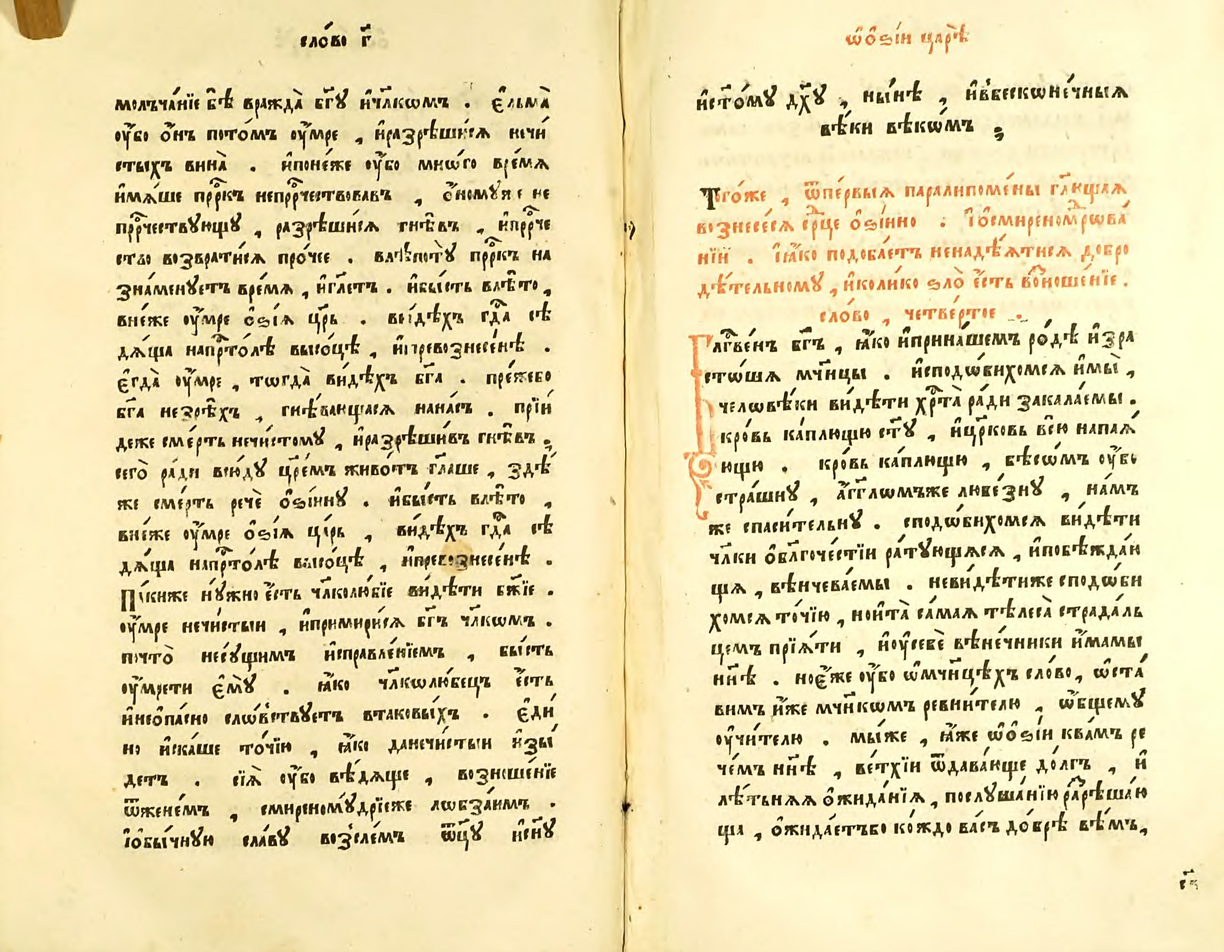 сло́во г҃
молъча́нїе бѣ̀ вражда̀ бг҃у ичл҃комъ . є҆льма̀
оу҆бо ѻ҆́нъ пото́мъ оу҆́мре , и҆разрѣши́сѧ нечи
стыхъ вина̀ . и҆поне́же оу҆́бо мно́го вре́мѧ
и҆мѧ́ше прⷪ҇ркъ непрⷪ҇рчествовавъ , ѻ҆́ному́же не
прⷪ҇рчествующу , разрѣши́сѧ гнѣ́въ , и҆прⷪ҇рче
ство возврати́сѧ про́чее . влѣ́поту прⷪ҇ркъ на
зна́менуетъ вре́мѧ , и҆гл҃етъ . и҆бы́сть влѣ́то ,
вне́же оу҆́мре ѻ҆ѕі́ѧ цр҃ь . ви́дѣхъ гдⷭ҇а сѣ
дѧ́ща напрⷭ҇то́лѣ высо́цѣ , и҆превознесе́нѣ .
є҆гда̀ оу҆́мре , тѡгда̀ ви́дѣхъ бг҃а . пре́жебо
бг҃а незрѣ́хъ , гнѣ́вающасѧ нана́съ . прїи́
деже сме́рть нечи́стому , и҆разрѣши́въ гнѣ́въ .
сего̀ ра́ди всю́ду цр҃е́мъ живо́тъ гл҃аше , здѣ́
же сме́рть речѐ ѻ҆ѕі́ину . и҆бы́сть влѣ́то ,
вне́же оу҆́мре ѻ҆ѕі́ѧ ца́рь , ви́дѣхъ гдⷭ҇а сѣ
дѧ́ща напрⷭ҇то́лѣ высо́цѣ , и҆превознесе́нѣ .
Па́киже ну́жно є҆́сть чл҃колю́бїе ви́дѣти бж҃їе .
оу҆́мре нечи́стыи , и҆примири́сѧ бг҃ъ чл҃комъ .
почто̀ несу́щимъ и҆справле́нїемъ , бы́сть
оу҆мре́ти є҆му̀ . ꙗ҆́ко чл҃колю́бецъ є҆́сть
и҆неѻ҆па́сно слѡ́вствуетъ втаковы́хъ . є҆ди́
но и҆ска́ше то́чїю , ꙗ҆́ко данечи́стыи и҆зы́
детъ . сїѧ̀ оу҆́бо вѣ́дѧще , возноше́нїе
ѿжене́мъ , смиреному́дрїеже лѡбза́имъ .
і҆ѻбы́чную сла́ву возсле́мъ ѻ҆ц҃у и҆сн҃у
ѡ҆ѻ҆ѕі́и царѣ̀
и҆ст҃о́му дх҃у , ны́нѣ , и҆вбесконе́чныѧ
вѣ́ки вѣко́мъ ;
Того́же , ѿпе́рвыѧ паралипоме́ны гл҃ющаѧ
вознесе́сѧ срⷣце ѻ҆ѕі́ино . і҆ѻсмиреномⷣрова́
нїи . і҆ꙗ҆́ко подоба́етъ ненадѣ́ѧтисѧ добро
дѣ́тельному , и҆коли́ко ѕло̀ є҆́сть во́зношенїе .
сло́во , четве́ртое .
Блгⷭ҇ве́нъ бг҃ъ , ꙗ҆́ко и҆прина́шемъ ро́дѣ и҆зра
сто́шѧ мч҃нцы . и҆сподо́бихомсѧ и҆мы̀ ,
челѡвѣ́ки ви́дѣти хрⷭ҇та̀ ра́ди закала́емы .
кро́вь ка́плющю ст҃у , и҆цр҃ковь всю̀ напаѧ́
ющю . кро́вь ка́плющю , бѣсо́мъ оу҆́бо
стра́шну , а҆́гг҃ломъже любе́зну , на́мъ
же спаси́тельну . сподо́бихомсѧ ви́дѣти
чл҃ки ѻ҆блгоче́стїи рату́ющѧсѧ , и҆побѣжда́ю
щѧ , вѣ́нчева́емы . неви́дѣтиже сподо́би
хомсѧ то́чїю , нои҆та̀ са́маѧ тѣлеса̀ страда́ль
цемъ прїѧ́ти , и҆оу҆себѐ вѣне́чники и҆́мамы
нн҃ѣ . ноє҆́же оу҆́бо ѡ҆мч҃нцѣхъ сло́во , ѡ҆ста́
вимъ и҆́же мч҃нкомъ ревни́телю , ѻ҆́бщему
оу҆чи́телю . мы́же , ꙗ҆́же ѡ҆ѻ҆ѕі́и ква́мъ ре
че́мъ нн҃ѣ , ве́тхїи ѿдава́юще до́лгъ , и҆
лѣ́тьнѧѧ ѻ҆жида́нїѧ , послуша́нїю разрѣша́ю
ща , ѻ҆жида́етъбо ко́ждо ва́съ до́брѣ вѣ́мъ ,